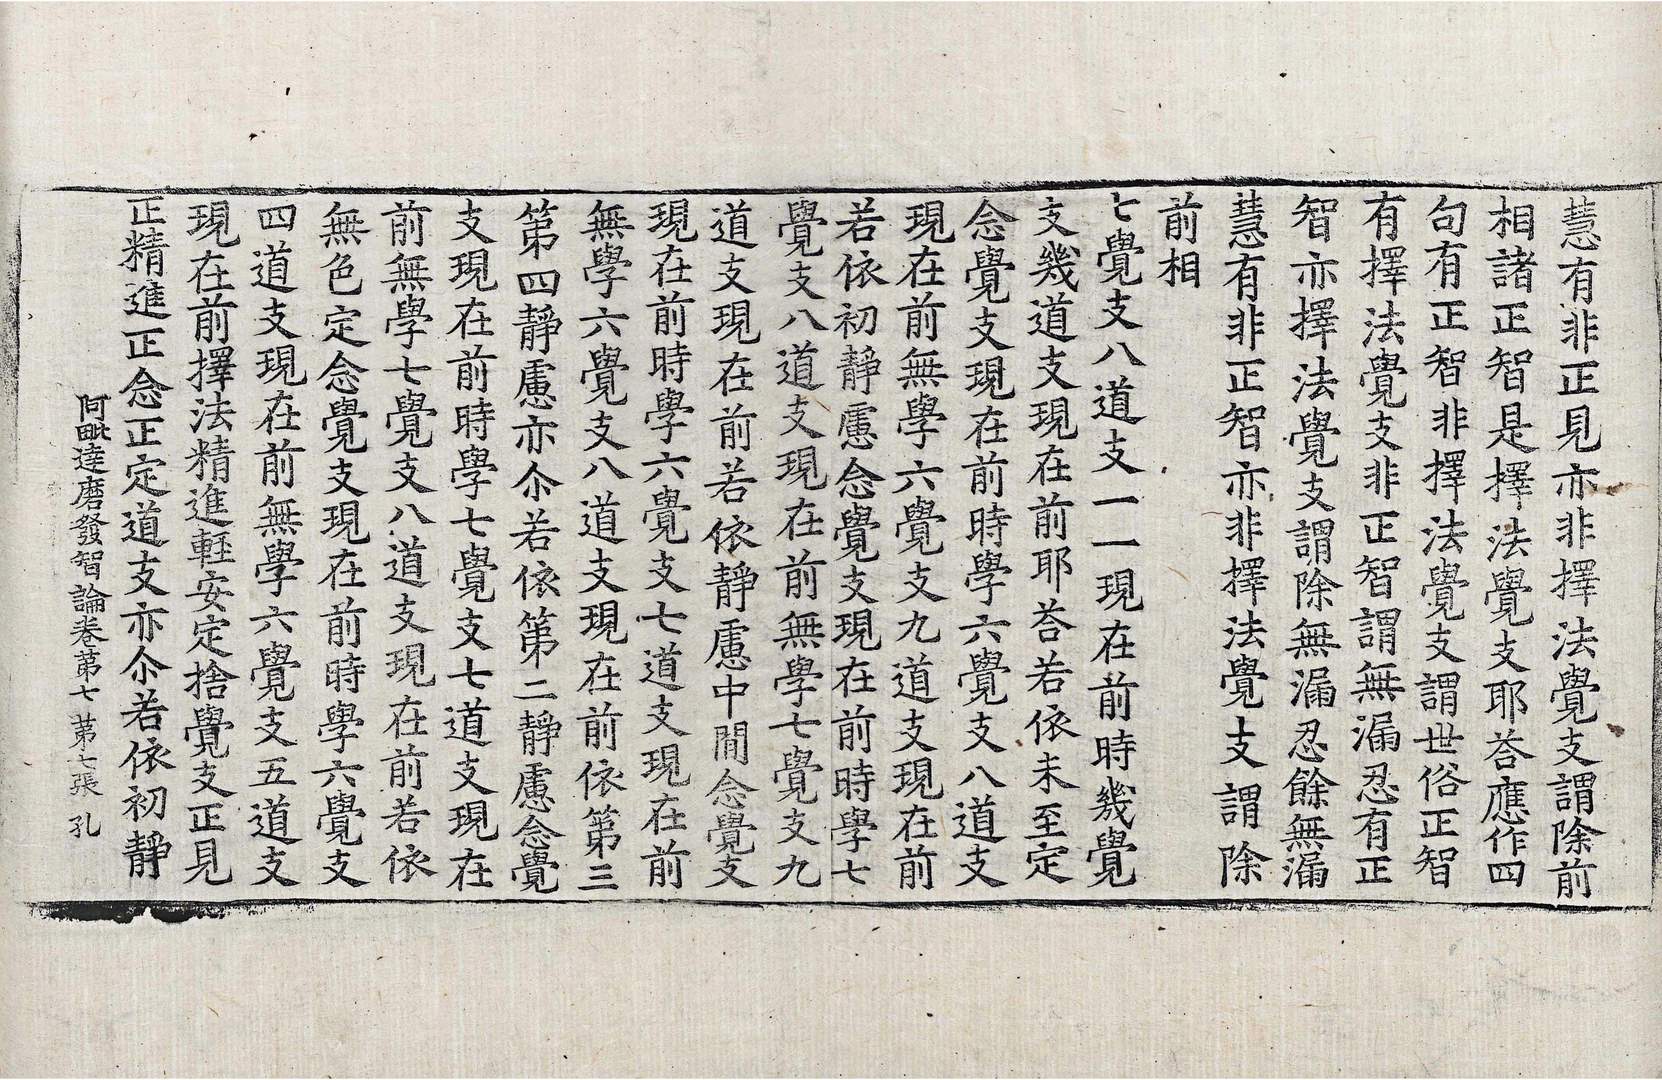 慧有非正見亦非擇法覺支謂除前
相諸正智是擇法覺支耶荅應作四
句有正智非擇法覺支謂世俗正智
有擇法覺支非正智謂無漏忍有正
智亦擇法覺支謂除無漏忍餘無漏
慧有非正智亦非擇法覺支謂除
前相
七覺支八道支一一現在前時幾覺
支幾道支現在前耶荅若依未至定
念覺支現在前時學六覺支八道支
現在前無學六覺支九道支現在前
若依初靜慮念覺支現在前時學七
覺支八道支現在前無學七覺支九
道支現在前若依靜慮中間念覺支
現在前時學六覺支七道支現在前
無學六覺支八道支現在前依第三
第四靜慮亦尒若依第二靜慮念覺
支現在前時學七覺支七道支現在
前無學七覺支八道支現在前若依
無色定念覺支現在前時學六覺支
四道支現在前無學六覺支五道支
現在前擇法精進輕安定捨覺支正見
正精進正念正定道支亦尒若依初靜
阿毗達磨發智論卷第七 第七張 孔